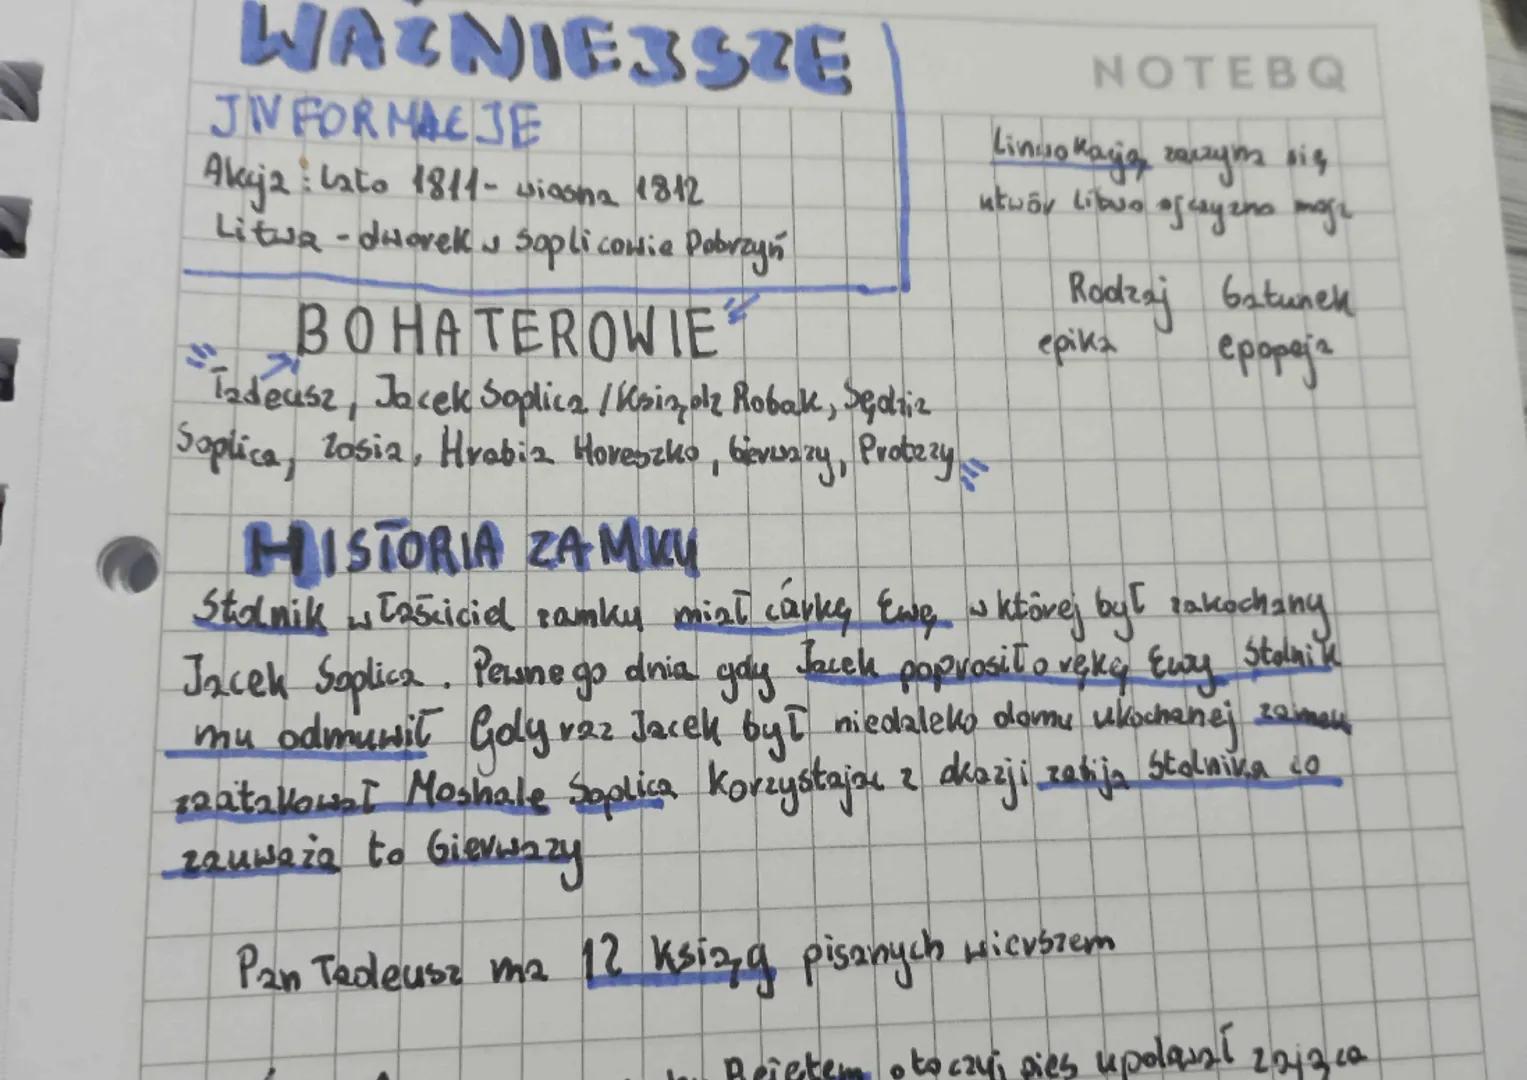 WAŻNIEJSZE
INFORMACJE
Akcja: lato 1811- wiosna 1812
Litwa - dworek w Soplicowie Dobrzyń
NOTEBO
Linwokacją zaczyna się
utwór Litwo ojczyzno moja
Rodzaj Gatunek
epika epopeja
BOHATEROWIE
Tadeusz, Jacek Soplica / Ksiądz Robak, Sędzia
Soplica, Zosia, Hrabia Horeszko, Gierwazy, Protazy
HISTORIA ZAMKU
Stolnik właściciel zamku miał córkę Ewę w której był zakochany
Jacek Soplica. Pewnego dnia gdy Jacek poprosił o rękę Ewy Stolnik
mu odmuwił Gdy raz Jacek był niedaleko domu ukochanej zamek
zaatakował Moskale Soplica korzystając z okazji zabija Stolnika co
zauważa to Gierwazy
Pan Tadeusz ma 12 Ksiąg pisanych wierszem
Rejetem otoczyi pies upolował zająca